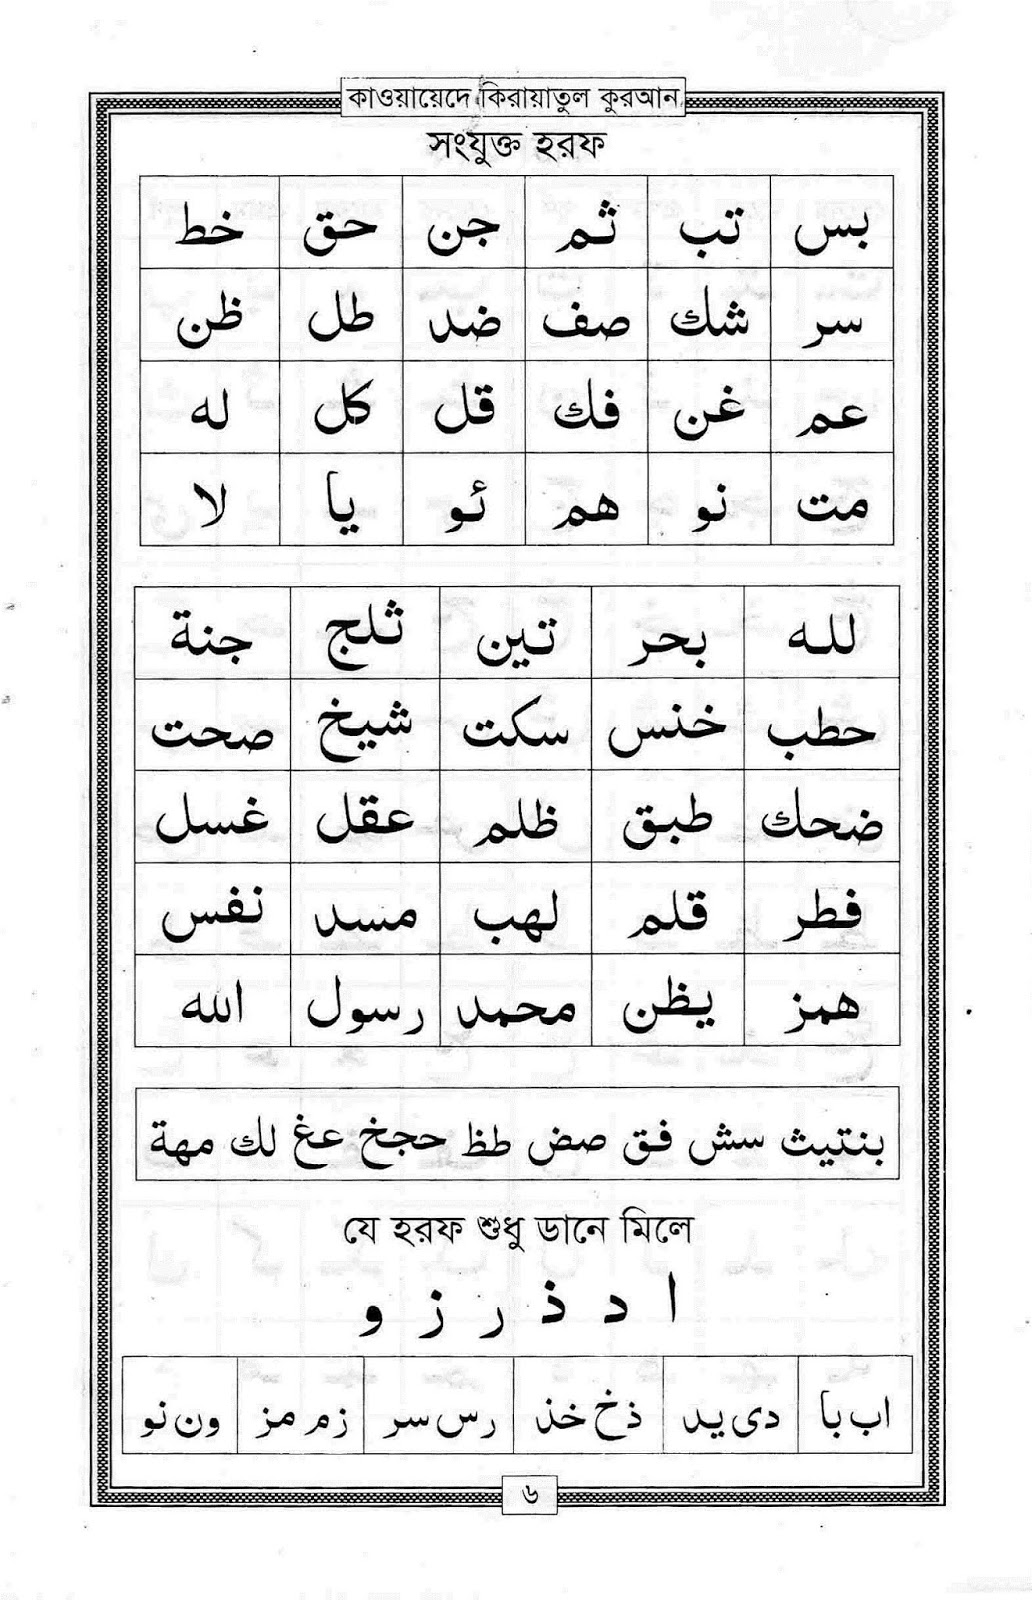 কাওয়ায়েদে কিরায়াতুল কুরআন
সংযুক্ত হরফ
بس تب ثم جن حق خط
سر شك صف ضد طل ظن
عم غن فك قل كل له
مت نو هم ئو يا لا
لله بحر تين ثلج جنة
حطب خنس سكت شيخ صحت
ضحك طبق ظلم عقل غسل
فطر قلم لهب مسد نفس
همز يظن محمد رسول الله
بنتيث سش فق صض طظ حجخ عغ لك مهة
যে হরফ শুধু ডানে মিলে
ا د ذ ر ز و
اب با دى يد ذخ خذ رس سر زم مز ون نو
৬